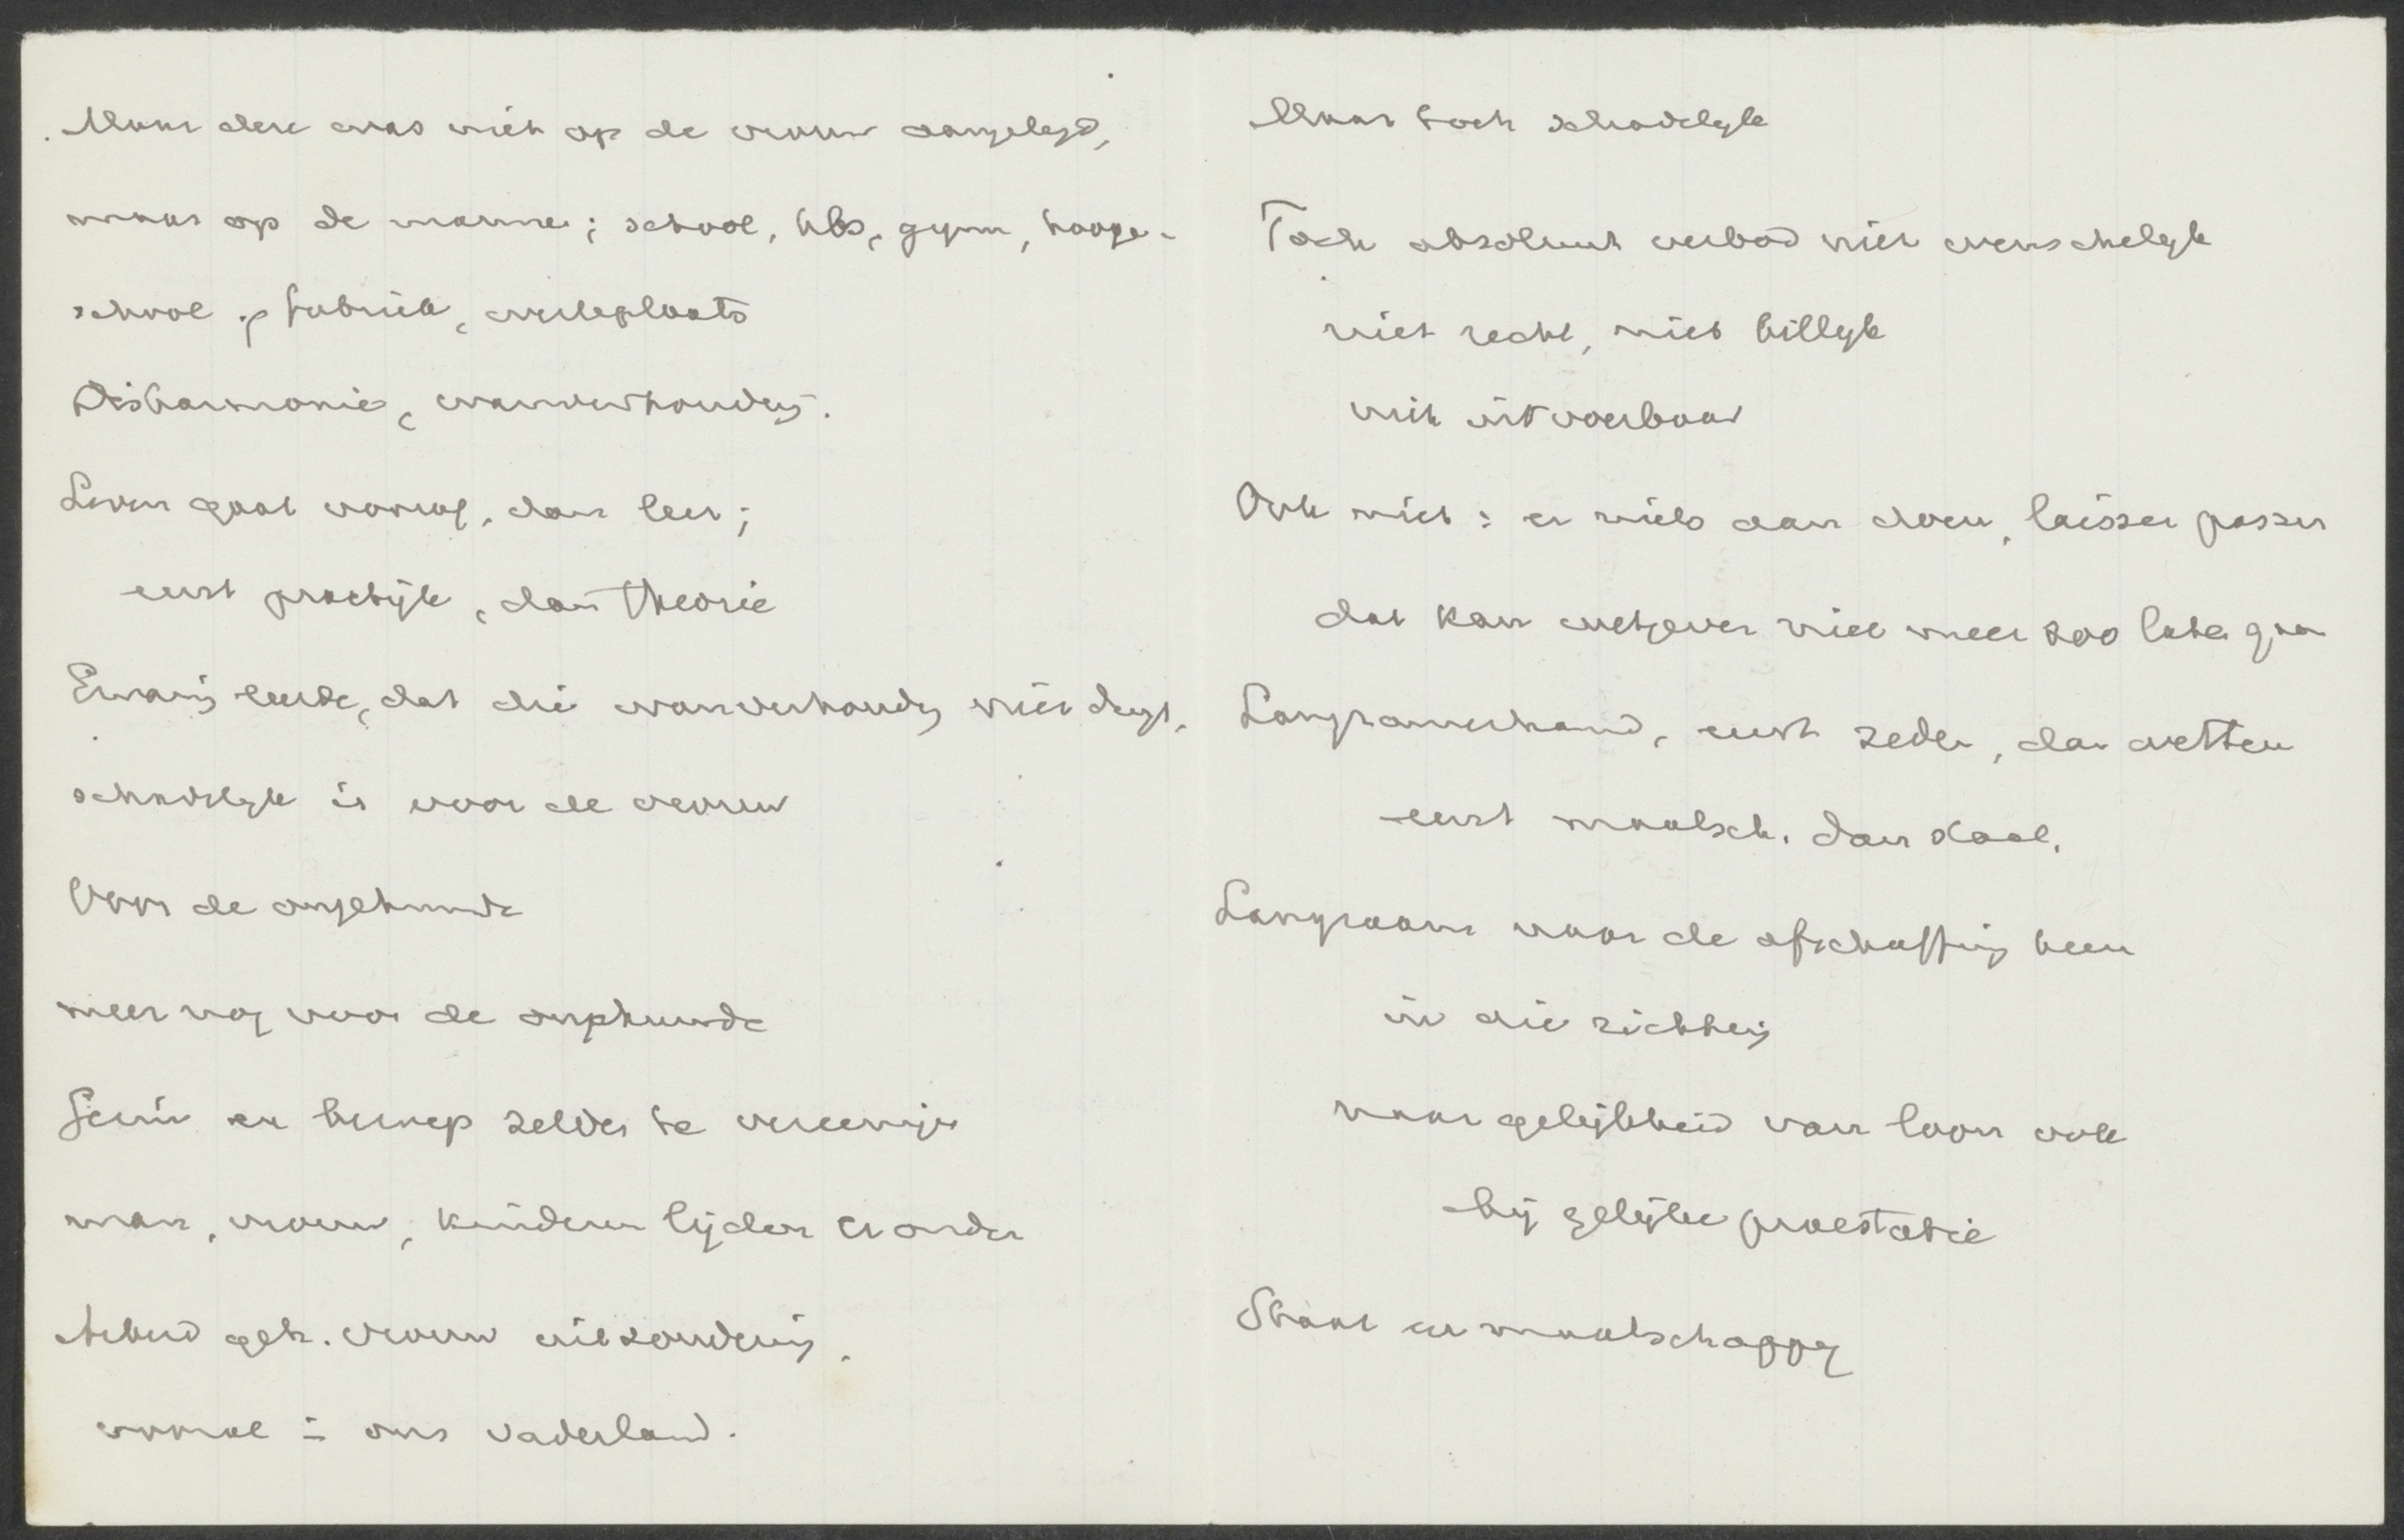 Maar deze was niet op de vrouw aangelegd,
maar op de mannen; school, hbs, gym, hooge-
school, fabriek, werkplaats
Disharmonie, wanverhouding.
Leven gaat voorop, dan leer;
eerst practijk, dan theorie
Ervaring leerde, dat die wanverhouding niet deugt,
schadelyk is voor de vrouw
Voor de ongehuwde
meer nog voor de
Gezin en beroep zelden te vereenigen
man, vrouw, kinderen lijden er onder
Arbeid geh. vrouw uitzondering.
vooral in ons vaderland.
Maar toch schadelyk
Toch absoluut verbod niet wenschelyk
niet recht, niet billyk
niet uitvoerbaar
Ook niet: er niets aan doen, laisser passer
dat kan wetgever niet meer zoo laten gaan
Langzamerhand, eerst zeden, dan wetten
eerst maatsch. dan staat.
Langzaam naar de afschaffing heen
in die richting
naar gelijkheid van loon ook
bij gelijke praestatie
Staat en maatschappy